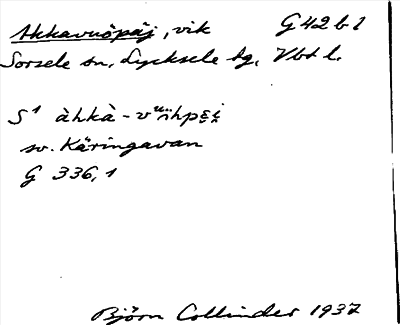 Akkavuöpäj, vik G 42 b 1
Sorsele sn, Lycksele tg, Vbt l.
S¹ àhkà - vuöhpɛi
sv. Käringavan
G 336, 1
Björn Collinder 1937